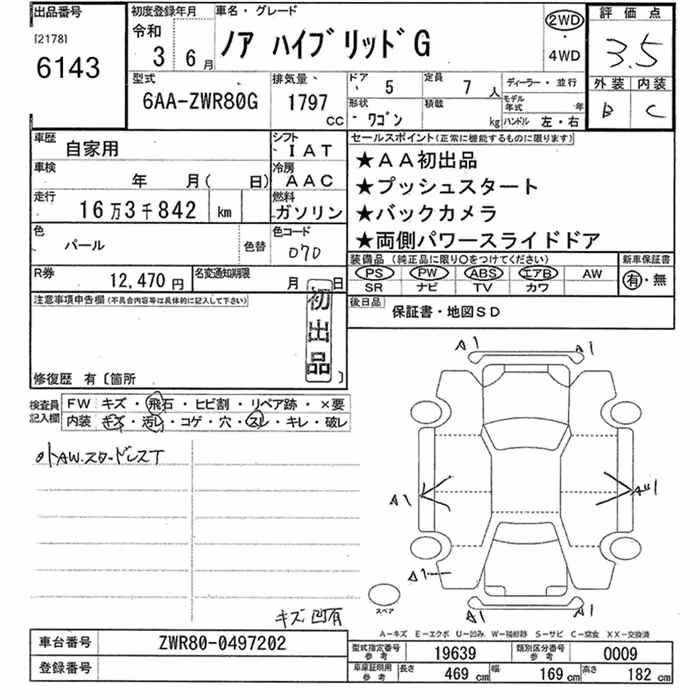 出品番号
[2178]
6143
初度登録年月
令和
3 6月
車名・グレード
ノア ハイブリッドG
2WD
・
4WD
評価点
3.5
外装 内装
B C
型式
6AA-ZWR80G
排気量
1797
CC
ドア
5
定員
7 人
形状
ワゴン
積載
kg
ディーラー・並行
モデル年式 年
ハンドル 左・右
車歴
自家用
シフト
IAT
車検
年 月( 日)
冷房
AAC
走行
16万3千842 km
燃料
ガソリン
色
パール
色替
色コード
070
R券
12,470円
名変通知期限
月 日
セールスポイント(正常に機能するものに限ります)
★AA初出品
★プッシュスタート
★バックカメラ
★両側パワースライドドア
装備品(純正品に限り○をつけてください)
PS PW ABS エアB AW
SR ナビ TV カワ
新車保証書
有・無
後日品
保証書・地図SD
注意事項申告欄(不具合内容等は具体的に記入して下さい)
初出品
修復歴 有〔箇所 〕
検査員記入欄
FW キズ・飛石・ヒビ割・リペア跡・×要
内装 キズ・汚レ・コゲ・穴・スレ・キレ・破レ
外AW.スタードレスT
キズ凹有
A1 A1
A1
A1
A1
スペア
A-キズ E-エクボ U-凹み W-補修跡 S-サビ C-腐食 XX-交換済
車台番号
ZWR80-0497202
登録番号
型式指定番号
参考
19639
類別区分番号
参考
0009
車庫証明用
参考
長さ
469 cm
幅
169 cm
高さ
182 cm